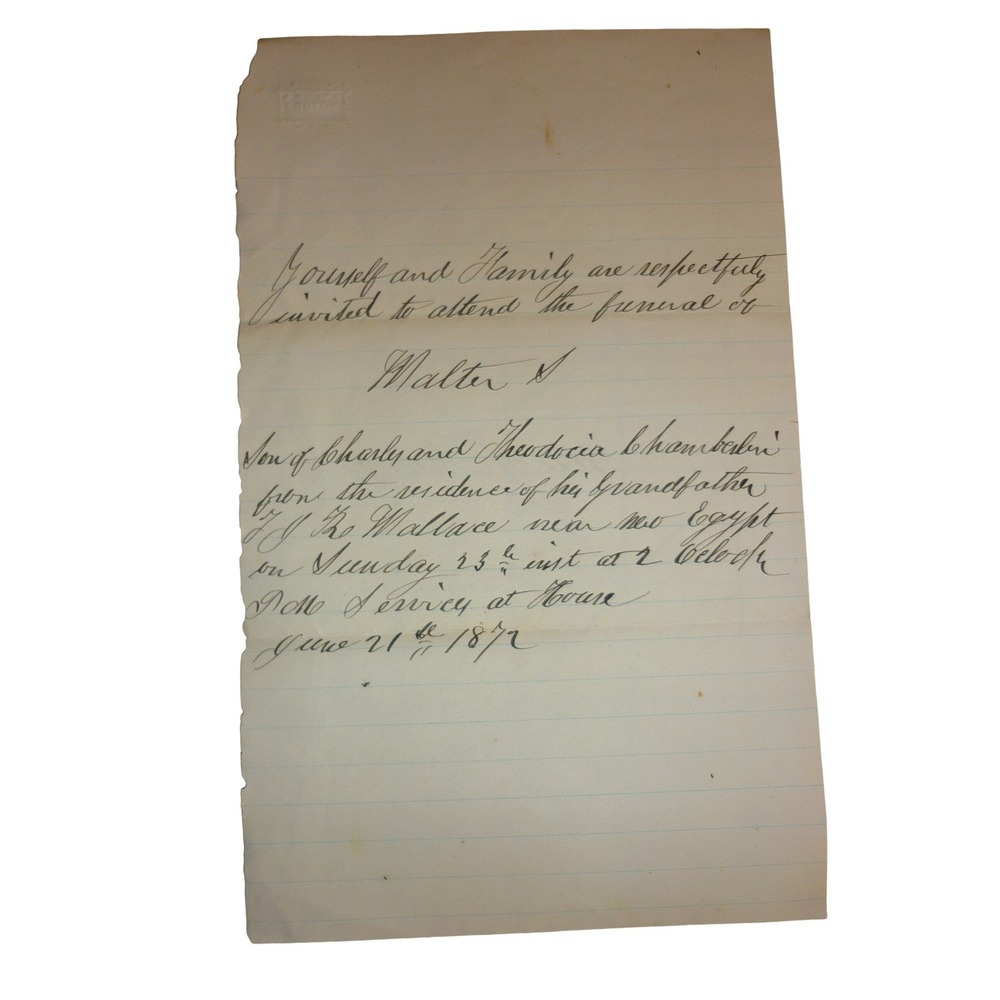 Yourself and Family are respectfuly
invited to attend the funeral of
Walter S
Son of Charles and Theodocia Chamberlin
from the residence of his Grandfather
Wallace near new Egypt
on Sunday 23th inst at 2 Oclock
P M Services at House
June 21st 1872